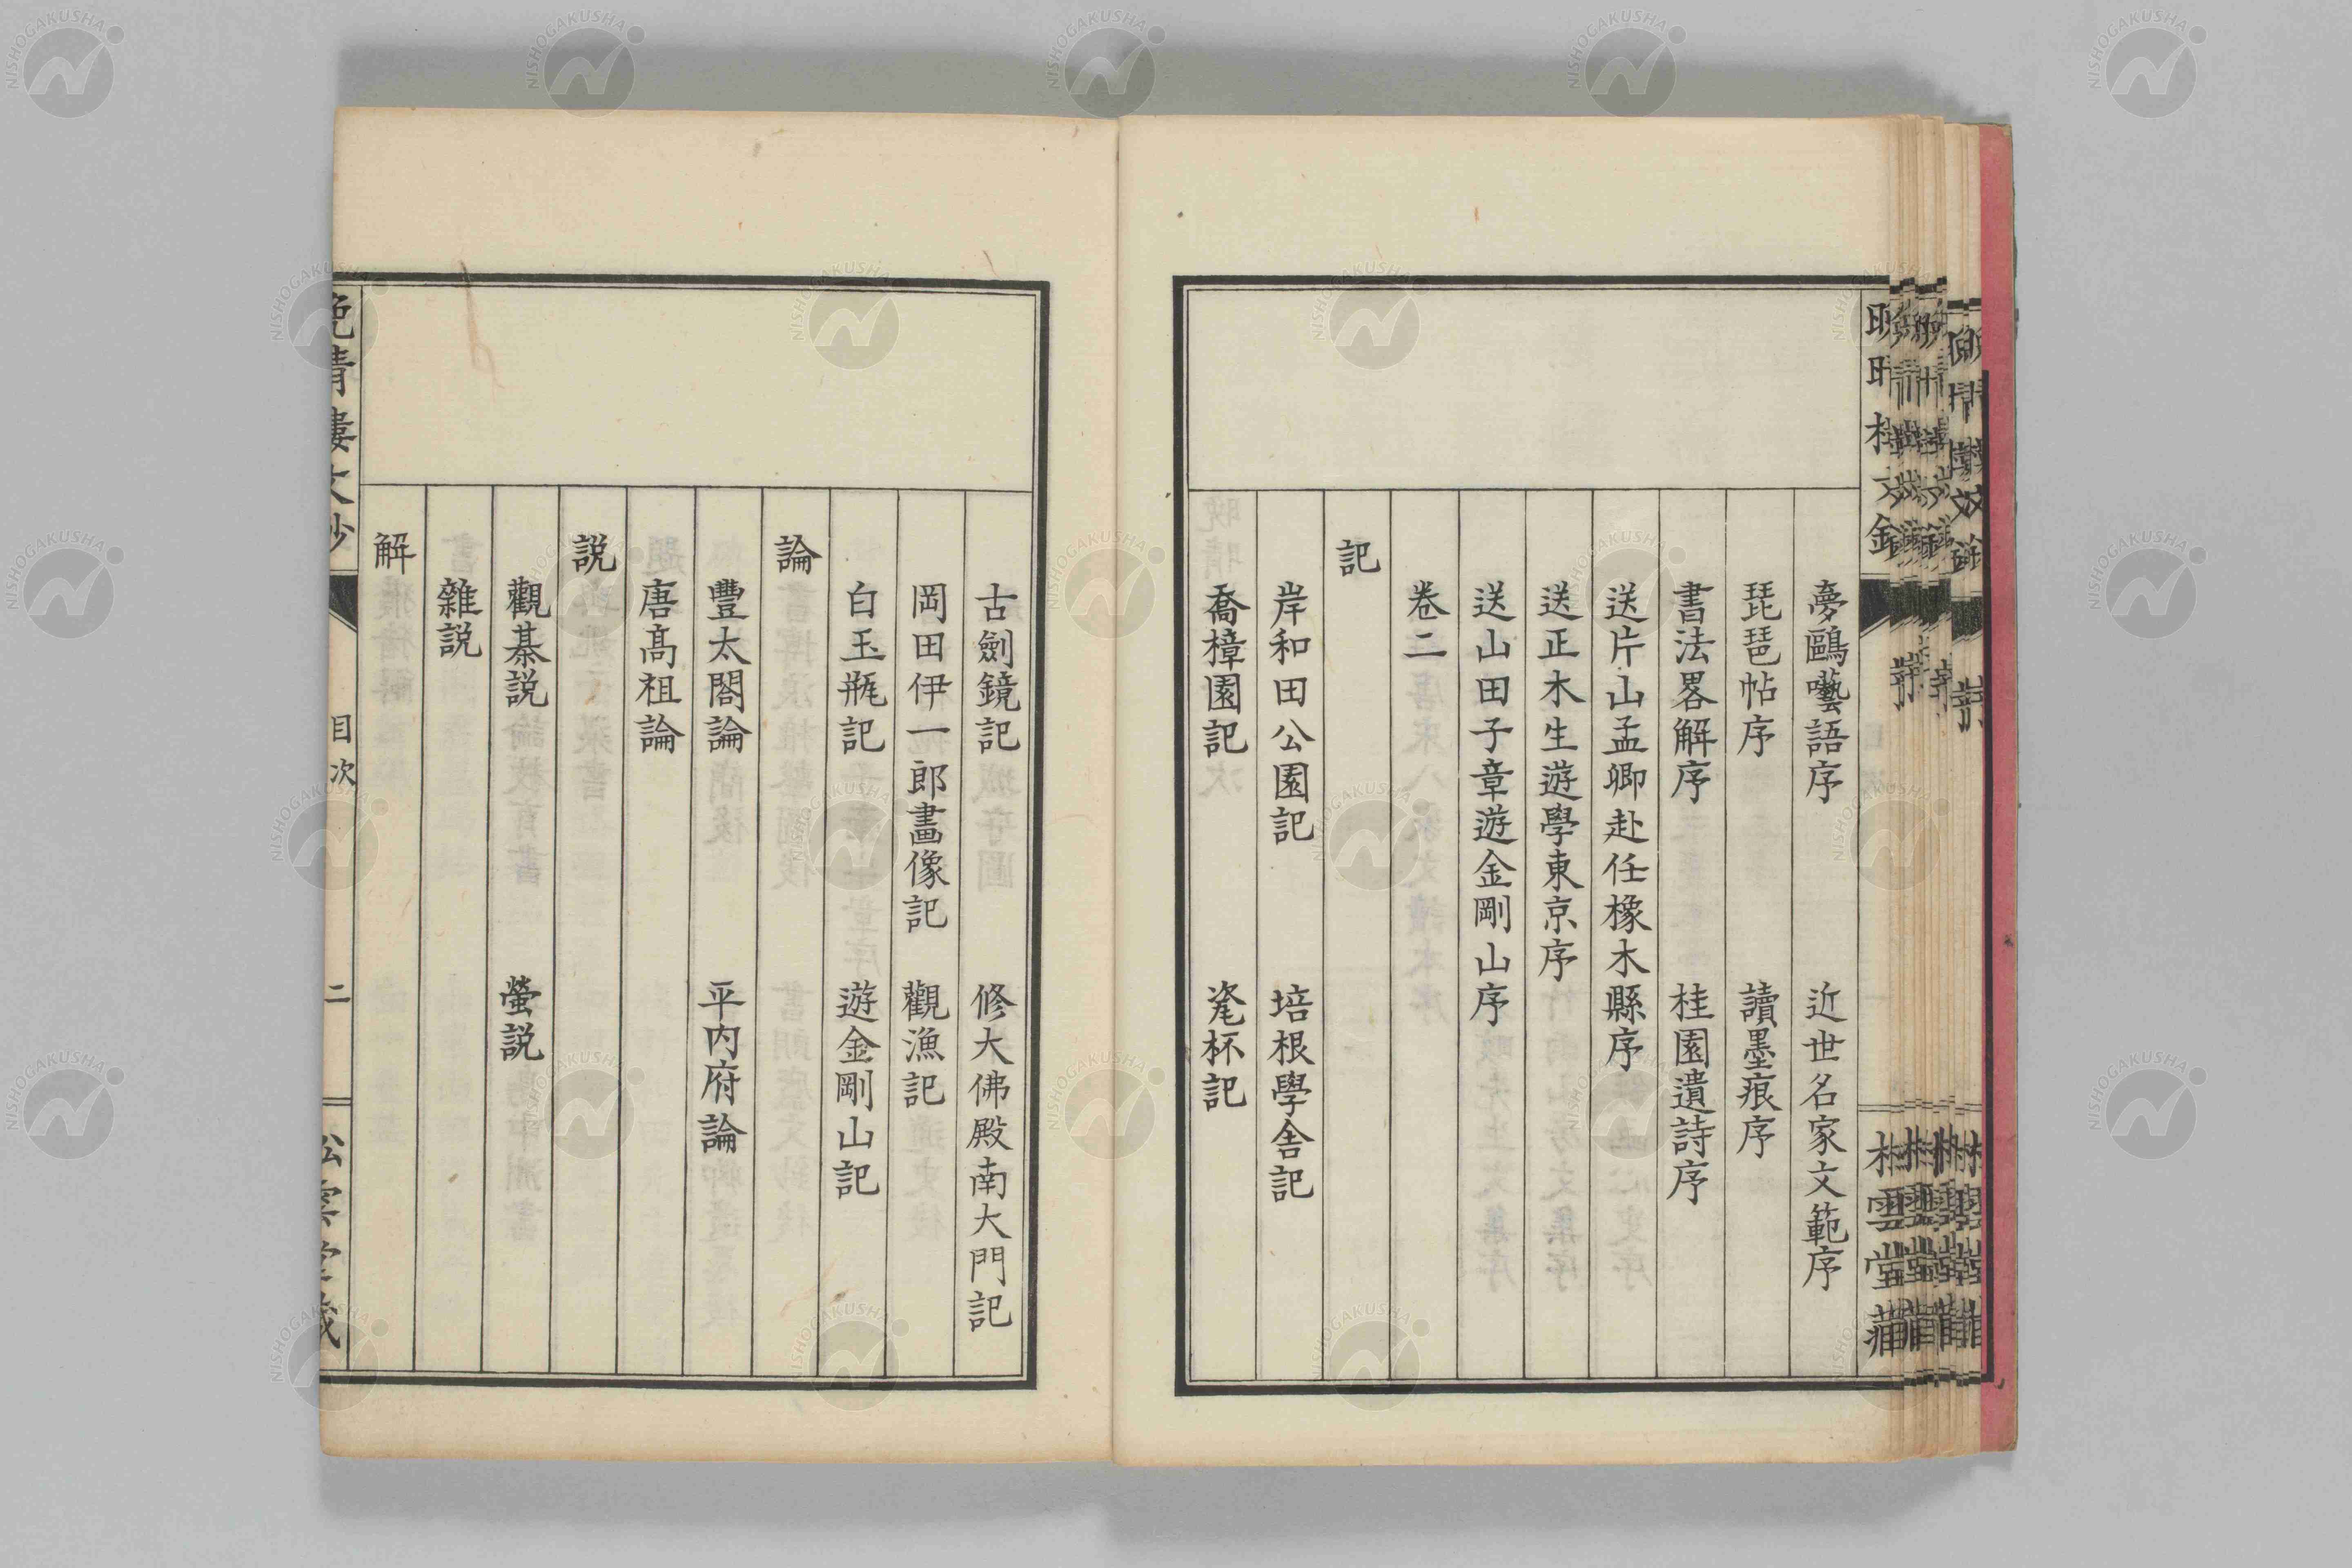 夢鷗囈語序　近世名家文範序
琵琶帖序　讀墨痕序
書法畧解序　桂園遺詩序
送片山孟卿赴任橡木縣序
送正木生遊學東京序
送山田子章遊金剛山序
卷二
記
岸和田公園記　培根學舍記
喬樟園記　瓷杯記
古劍鏡記　修大佛殿南大門記
岡田伊一郎畫像記　觀漁記
白玉甁記　遊金剛山記
論
豐太閤論　平內府論
唐高祖論
説
觀棊説　螢説
雜説
解
晩晴樓文鈔　目次　二　松雲堂藏
NISHOGAKUSHA